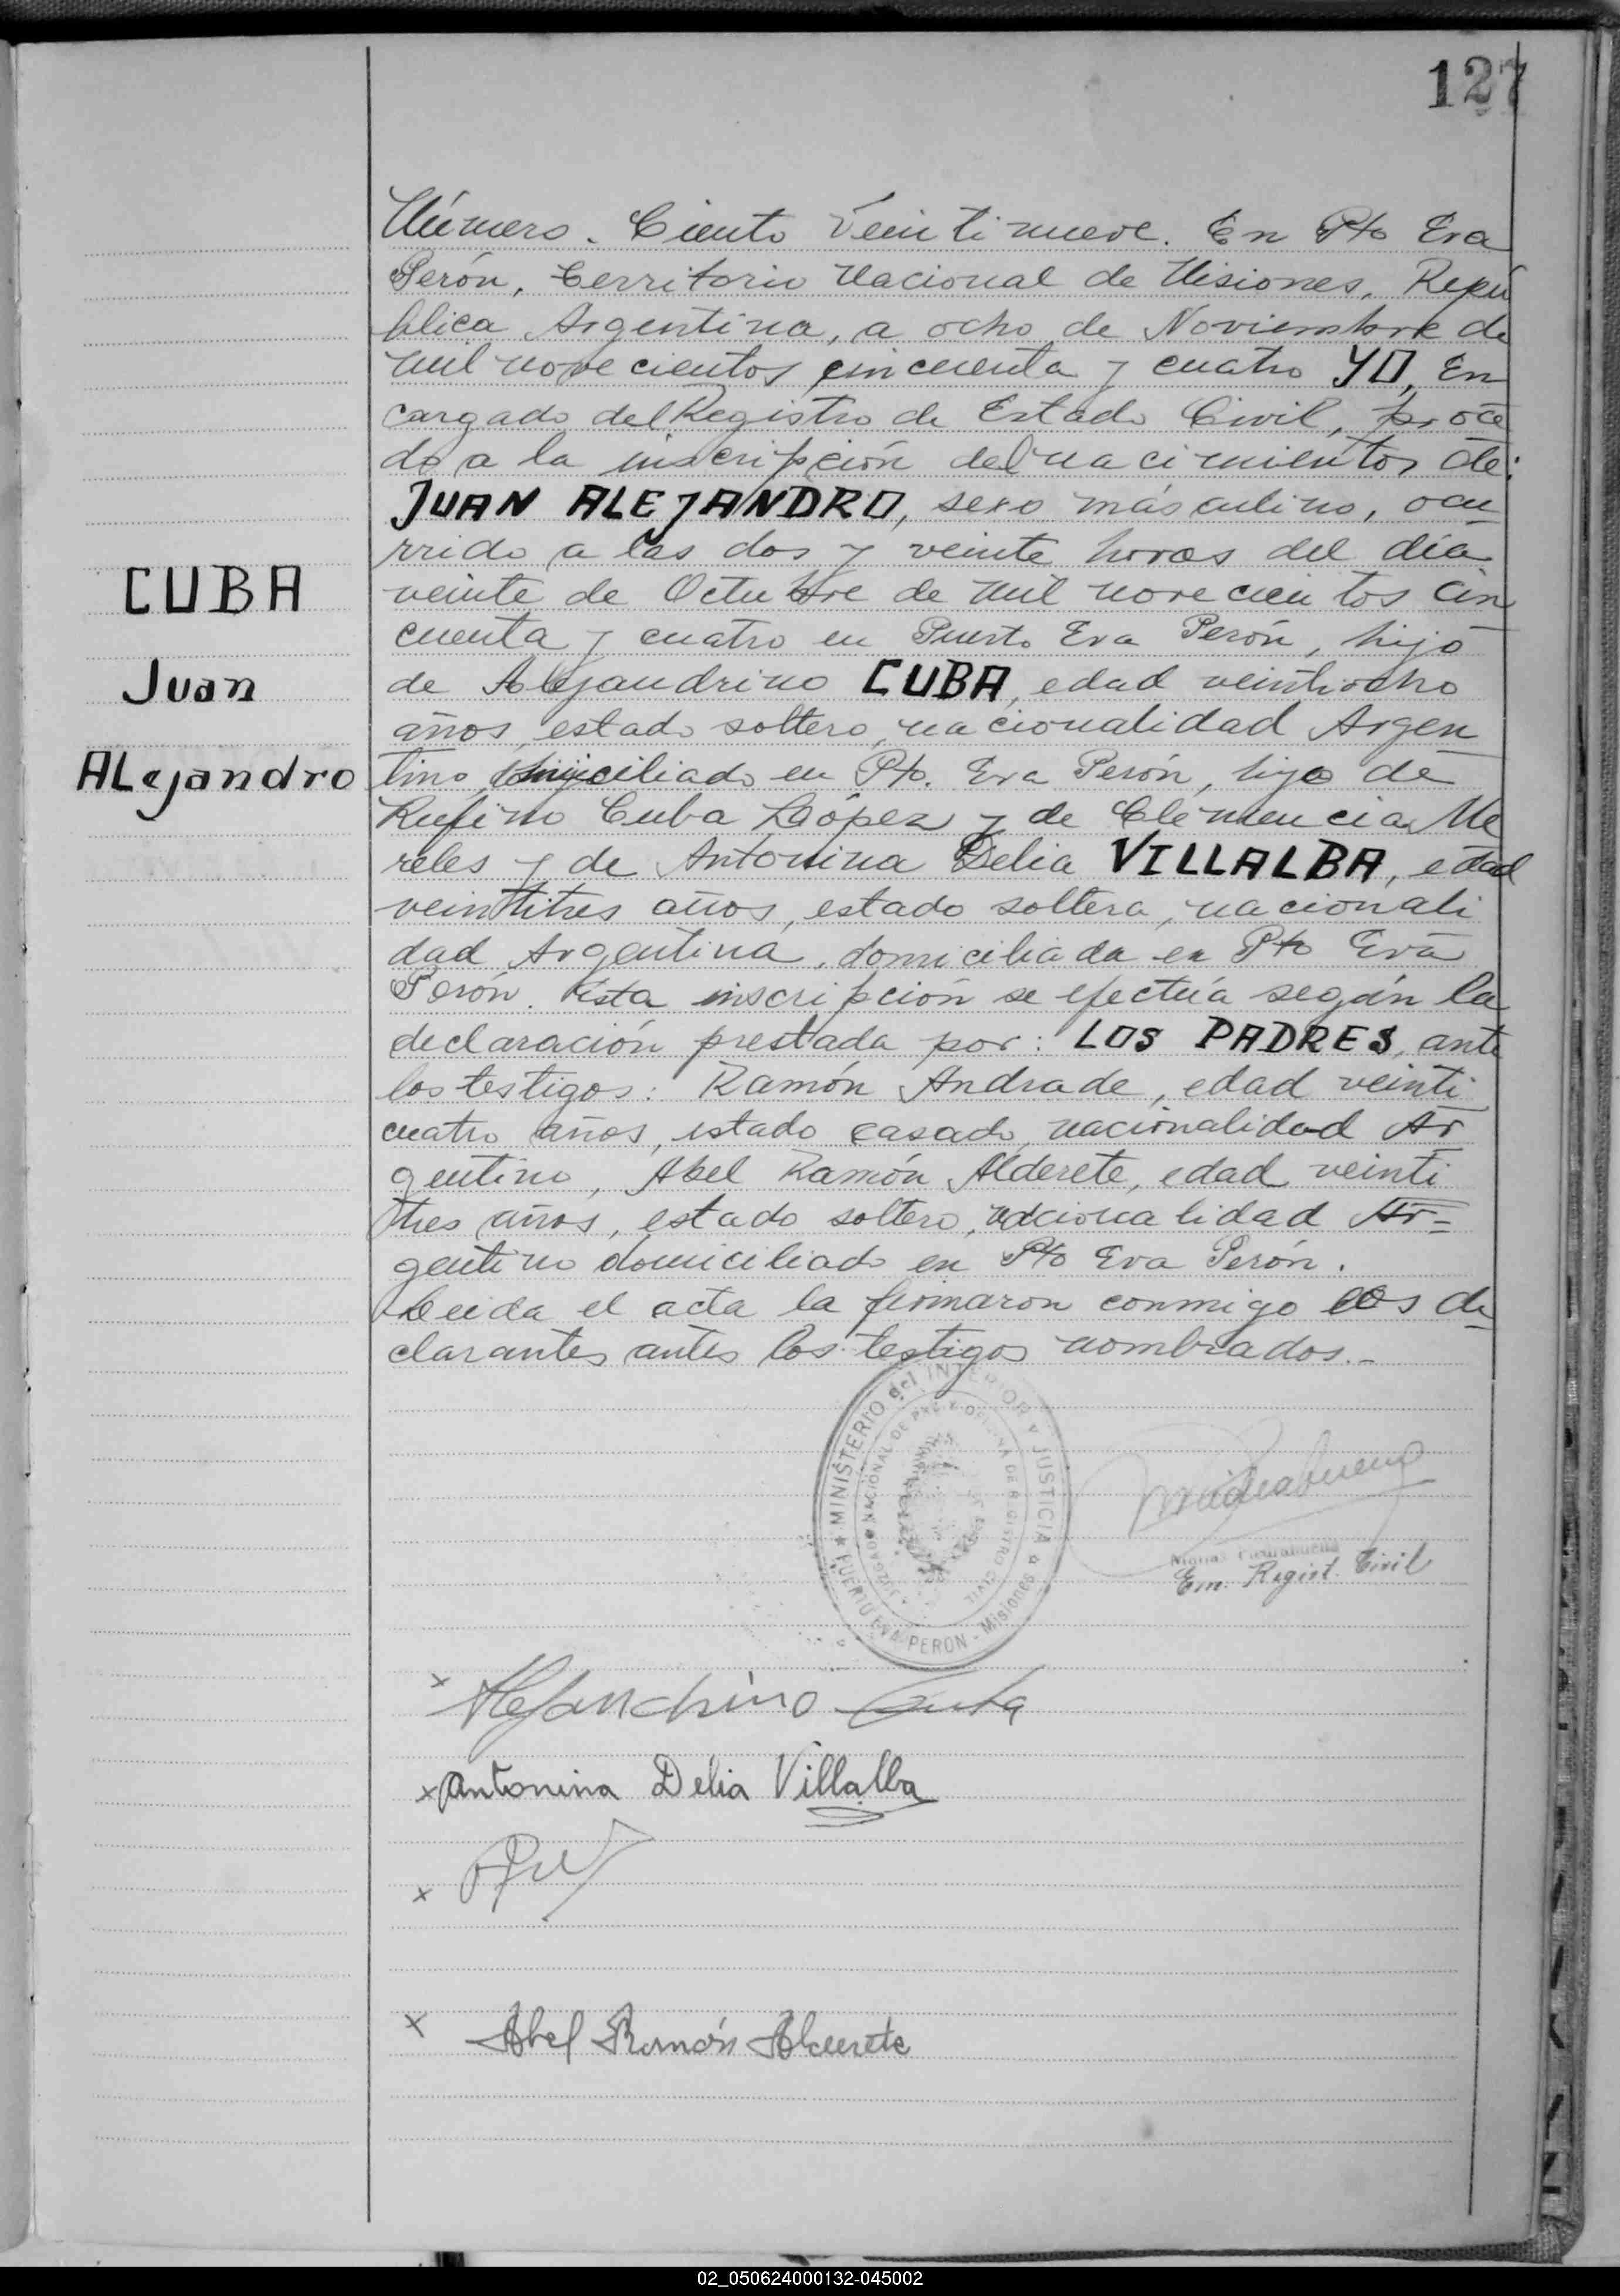 127
Número. Ciento Veintinueve. En Pto Eva
Perón, Territorio Nacional de Misiones, Repú
blica Argentina, a ocho de Noviembre de
mil novecientos cincuenta y cuatro YO, En
cargado del Registro de Estado Civil, proce
do a la inscripción del nacimientos de:
JUAN ALEJANDRO, sexo másculino, ocu
rrido a las dos y veinte horas del día
veinte de Octubre de mil novecientos cin
cuenta y cuatro en Puerto Eva Perón, hijo
de Alejandrino CUBA, edad veintiocho
años, estado soltero, nacionalidad Argen
tino, domiciliado en Pto. Eva Perón, hijo de
Rufino Cuba López y de Clemencia Me
reles y de Antonina Delia VILLALBA, edad
veintitres años, estado soltera, nacionali
dad Argentina, domiciliada en Pto Eva
Perón. Esta inscripción se efectúa según la
declaración prestada por: LOS PADRES, ante
los testigos: Ramón Andrade, edad veinti
cuatro años, estado casado, nacionalidad Ar
gentino, Abel Ramón Alderete, edad veinti
tres años, estado soltero, nacionalidad Ar=
gentino domiciliado en Pto Eva Perón.
Leida el acta la firmaron conmigo los de
clarantes antes los testigos nombrados.-
CUBA
Juan
ALejandro
MINISTERIO del INTERIOR y JUSTICIA
PUERTO EVA PERON - Misiones
Matías Piedrabuena
En. Regist. Civil
x Alejandrino Cuba
x Antonina Delia Villalba
x
x Abel Ramón Alderete
02_050624000132-045002